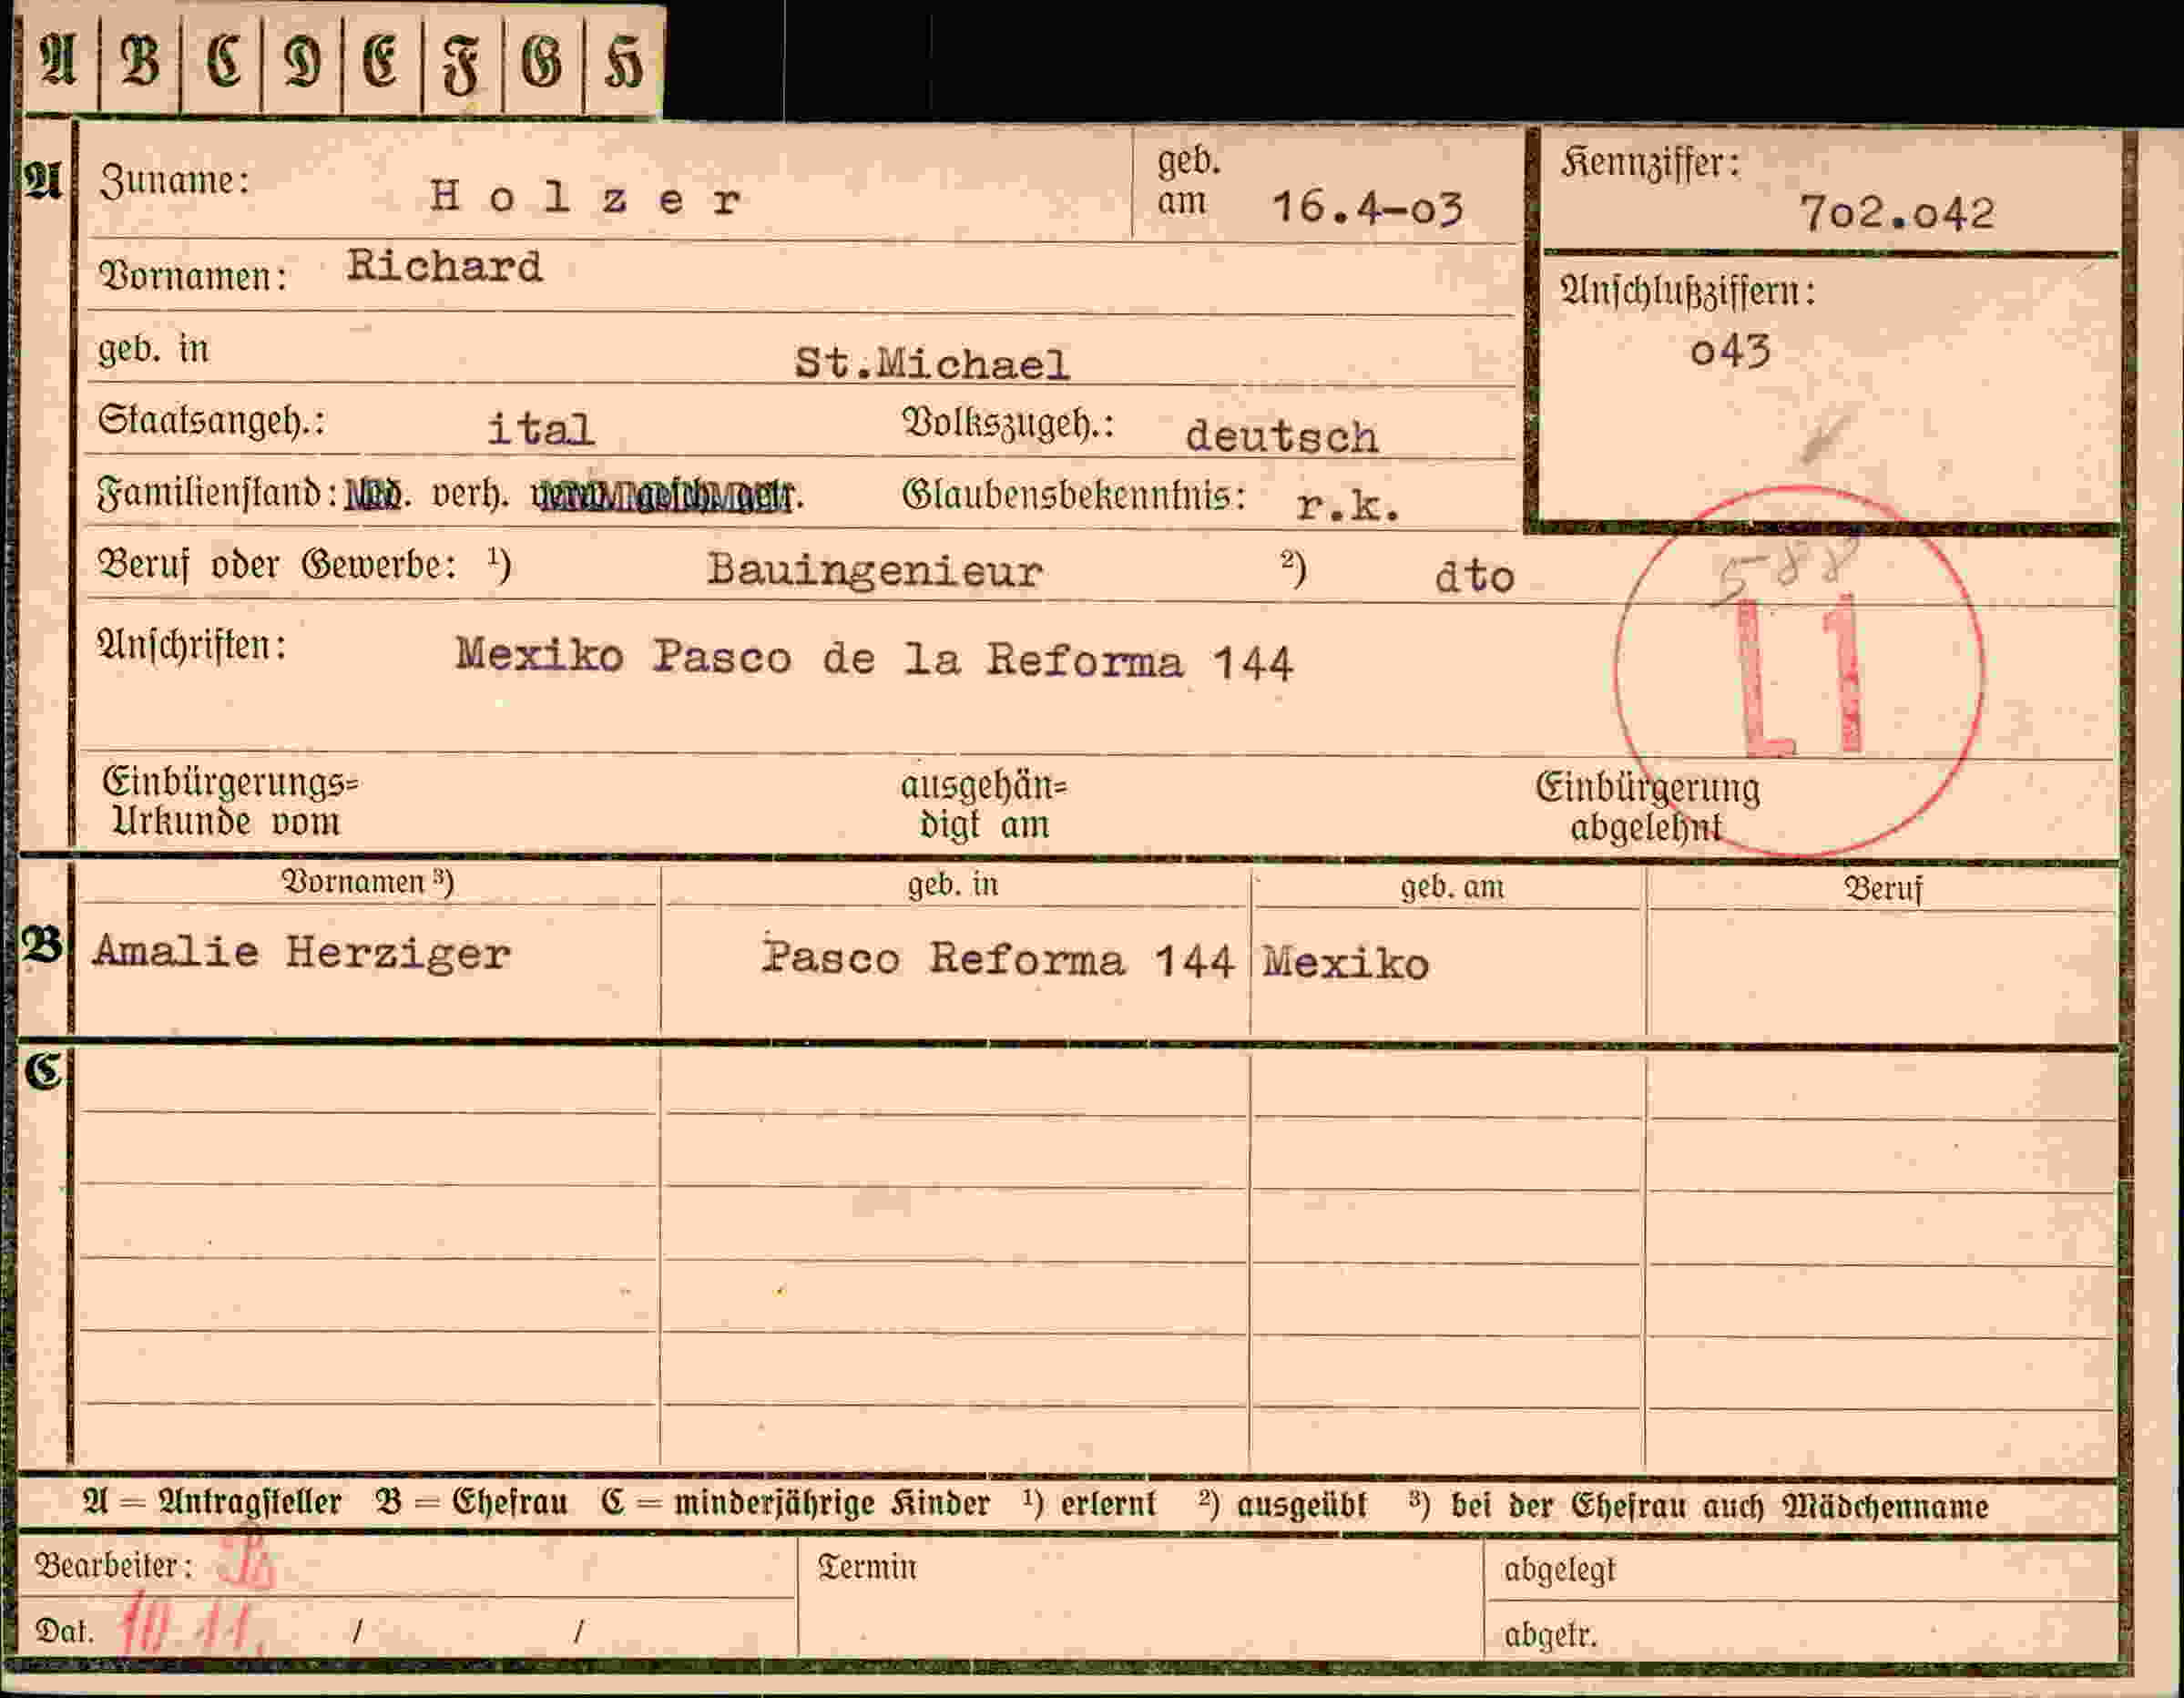 A B C D E F G H
A Zuname: Holzer geb. am 16.4-03 Kennziffer: 702.042
Vornamen: Richard Anschlußziffern: 043
geb. in St.Michael
Staatsangeh.: ital Volkszugeh.: deutsch
Familienstand: verh. Glaubensbekenntnis: r.k.
Beruf oder Gewerbe: 1) Bauingenieur 2) dto 588
Anschriften: Mexiko Pasco de la Reforma 144 L1
Einbürgerungs= Urkunde vom ausgehän= digt am Einbürgerung abgelehnt
Vornamen 3) geb. in geb. am Beruf
B Amalie Herziger Pasco Reforma 144 Mexiko
C
A = Antragsteller B = Ehefrau C = minderjährige Kinder 1) erlernt 2) ausgeübt 3) bei der Ehefrau auch Mädchenname
Bearbeiter: Termin abgelegt
Dat. 10.11. / / abgetr.